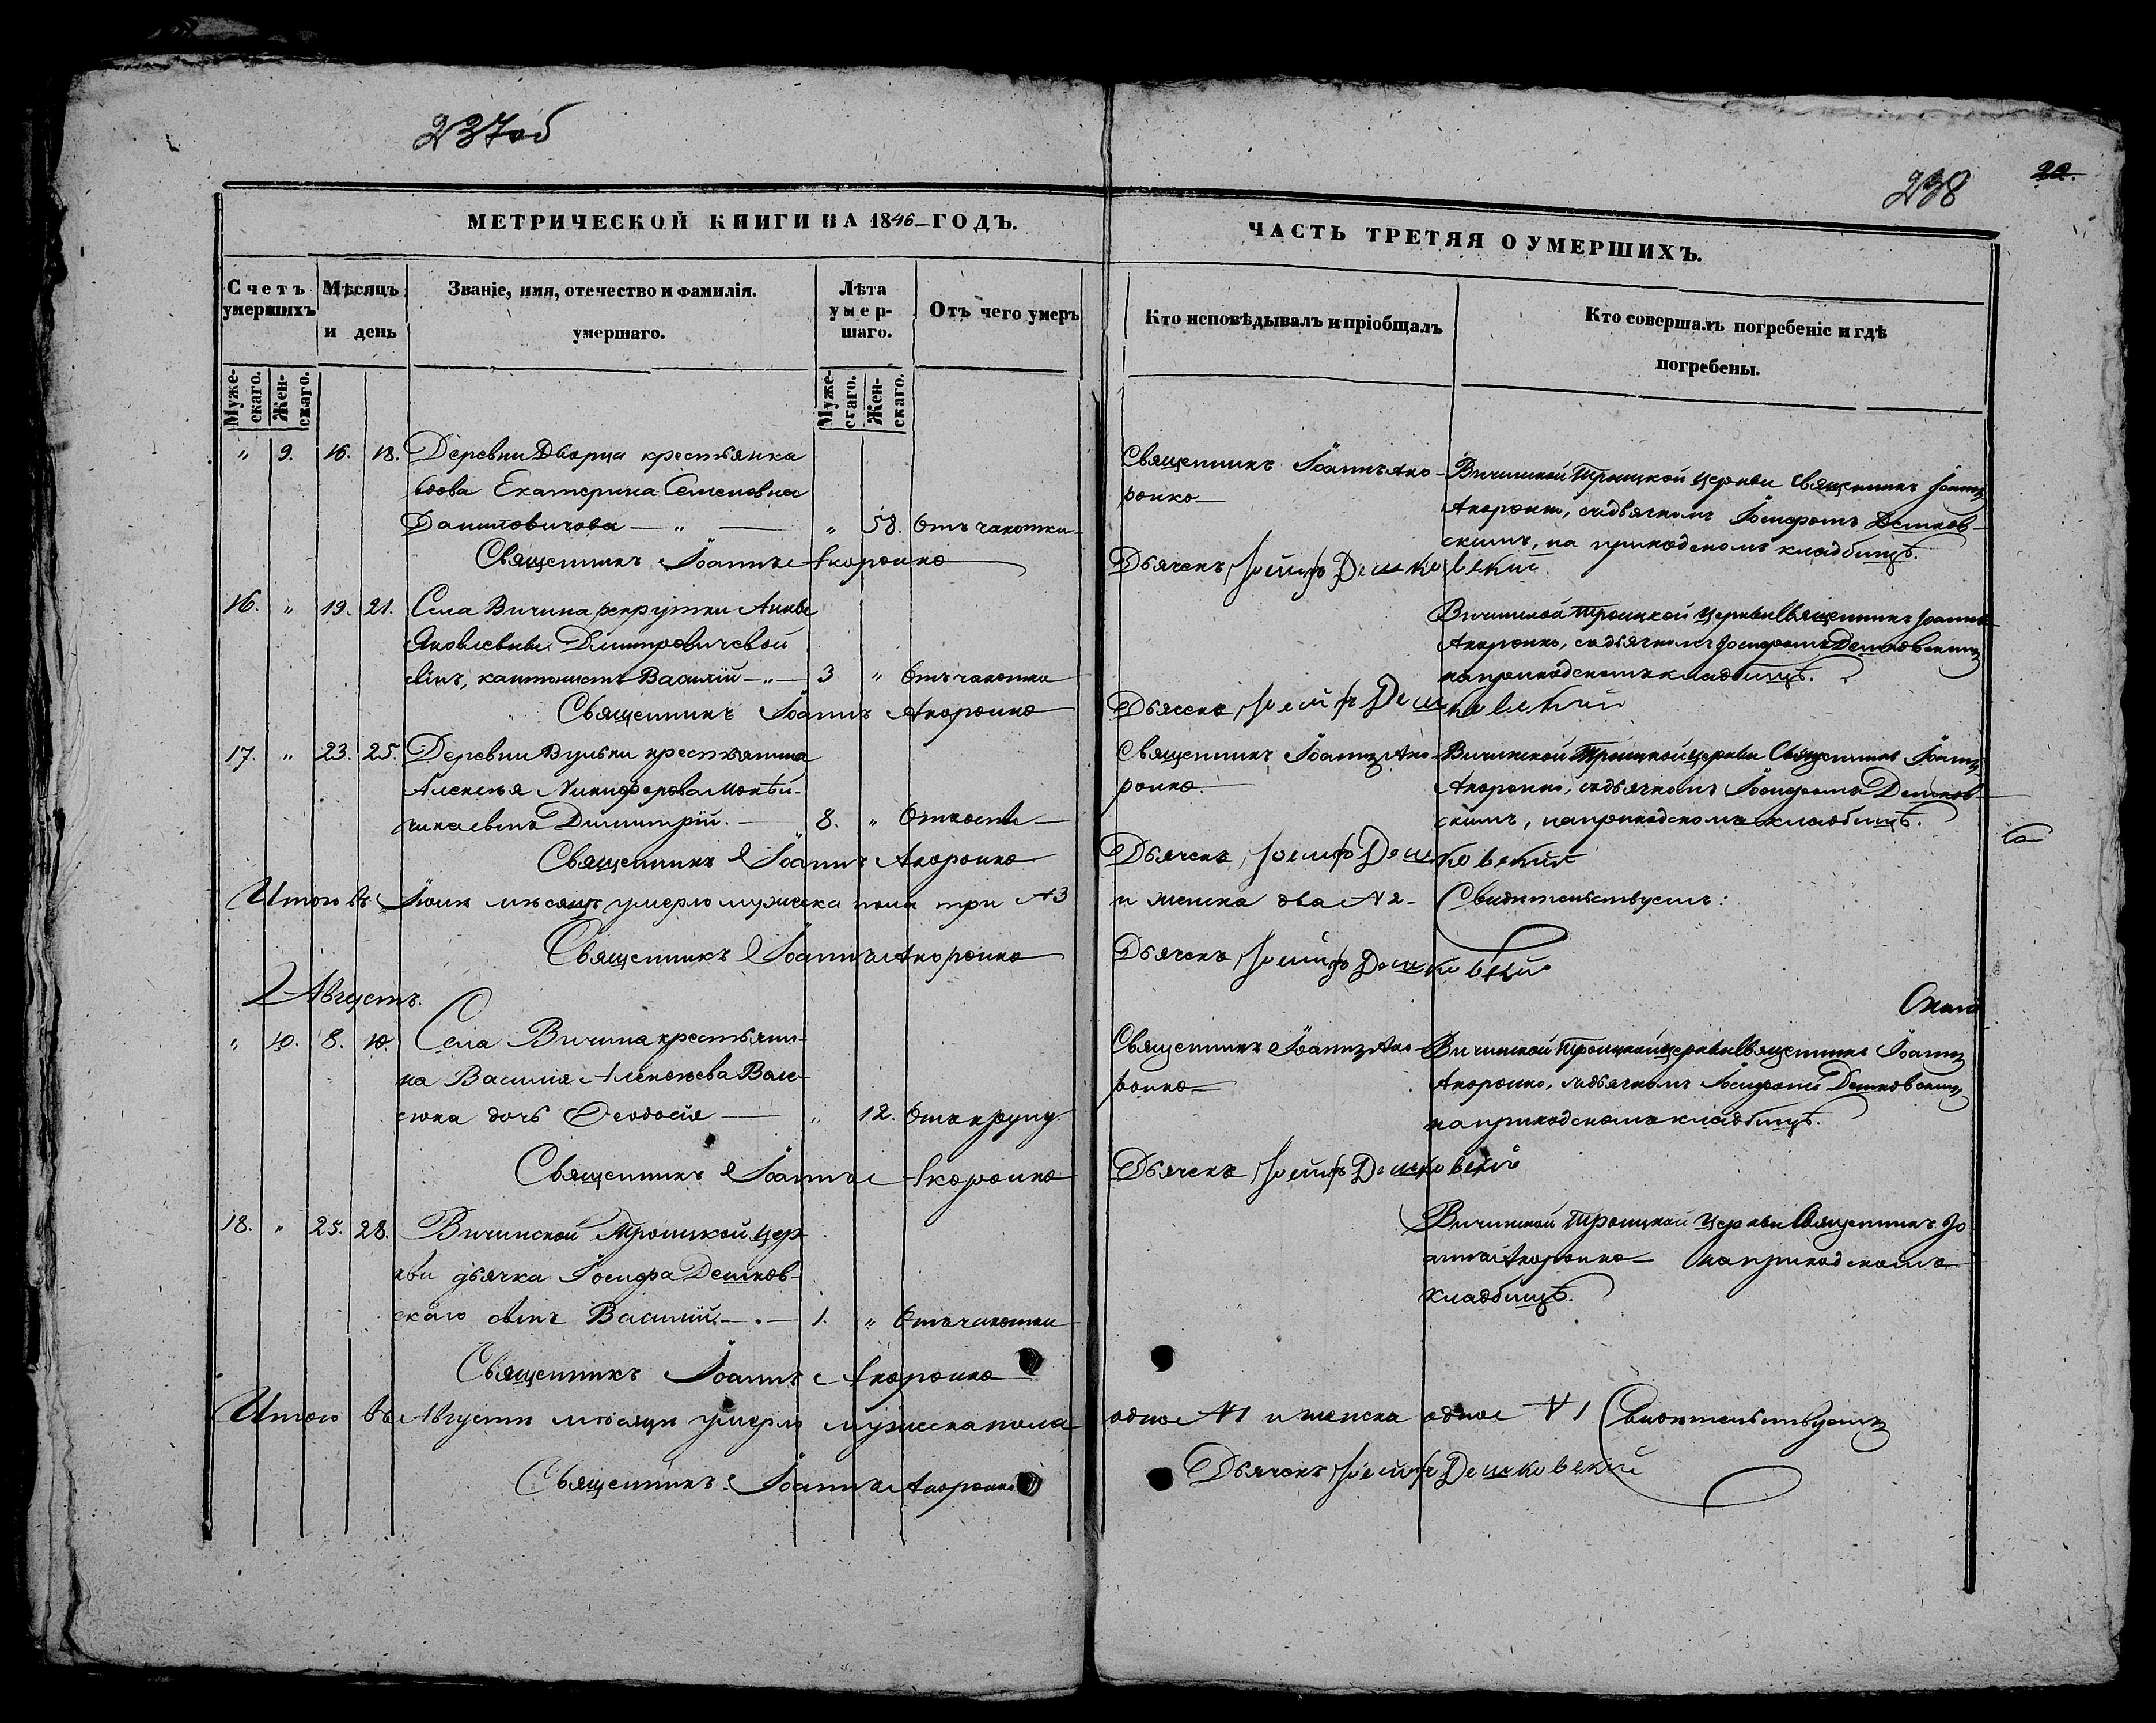 237об
238
22.
МЕТРИЧЕСКОЙ КНИГИ НА 1846 ГОДЪ.
ЧАСТЬ ТРЕТЯЯ О УМЕРШИХЪ.
Счетъ умершихъ
Мѣсяцъ и день
Званіе, имя, отечество и фамилія. умершаго.
Лѣта умер-шаго.
Отъ чего умеръ
Кто исповѣдывалъ и пріобщалъ
Кто совершалъ погребеніе и гдѣ погребены.
Муже-скаго. Жен-скаго.
Муже-скаго. Жен-скаго.
" 9. 16. 18. Деревни Дворца крестьянка
вдова Екатерина Семеновна
Даниловичова — " — " 58. Отъ чахотки
Священникъ Іоаннъ Акоронко
Священникъ Іоаннъ Ако-
ронко
Вичинской Троицкой церкви Священникъ Іоаннъ
Акоронко, съ дьячкомъ Іосифомъ Дешков-
скимъ, на приходскомъ кладбищѣ.
Дьячекъ Іосифъ Дешковскій
16. " 19. 21. Села Вичина рекрутки Анны
Яковлевны Димитровичевой
сынъ, кантонистъ Василій — " — 3 " Отъ чахотки
Священникъ Іоаннъ Акоронко
Вичинской Троицкой церкви Священникъ Іоаннъ
Акоронко, съ дьячкомъ Іосифомъ Дешковскимъ
на приходскомъ кладбищѣ.
Дьячекъ Іосифъ Дешковскій
17. " 23. 25. Деревни Вульки крестьянина
Алексѣя Никифорова
сынъ Димитрій. — 8. "
Священникъ Іоаннъ Акоронко
Священникъ Іоаннъ Ако-
ронко
Вичинской Троицкой церкви Священникъ Іоаннъ
Акоронко, съ дьячкомъ Іосифомъ Дешков-
скимъ, на приходскомъ кладбищѣ.
Дьячекъ Іосифъ Дешковскій
Итого въ мѣсяцѣ умерло мужеска пола три №3
и женска два №2 — Свидѣтельствуемъ:
Священникъ Іоаннъ Акоронко
Дьячекъ Іосифъ Дешковскій
Августъ.
" 10. 8. 10. Села Вичина крестьяни-
на Василія Алексѣева Вале-
сюка дочь Феодосія — " 12. Отъ крупу.
Священникъ Іоаннъ Акоронко
Священникъ Іоаннъ Ако-
ронко
Вичинской Троицкой церкви Священникъ Іоаннъ
Акоронко, съ дьячкомъ Іосифомъ Дешковскимъ
на приходскомъ кладбищѣ.
Дьячекъ Іосифъ Дешковскій
18. " 25. 28. Вичинской Троицкой цер-
кви дьячка Іосифа Дешков-
скаго сынъ Василій — . — 1. " Отъ чахотки
Священникъ Іоаннъ Акоронко
Вичинской Троицкой церкви Священникъ Іо-
аннъ Акоронко — на приходскомъ
кладбищѣ.
Итого въ Августѣ мѣсяцѣ умерло мужеска пола
одно №1 и женска одно №1 Свидѣтельствуемъ
Священникъ Іоаннъ Акоронко
Дьячекъ Іосифъ Дешковскій